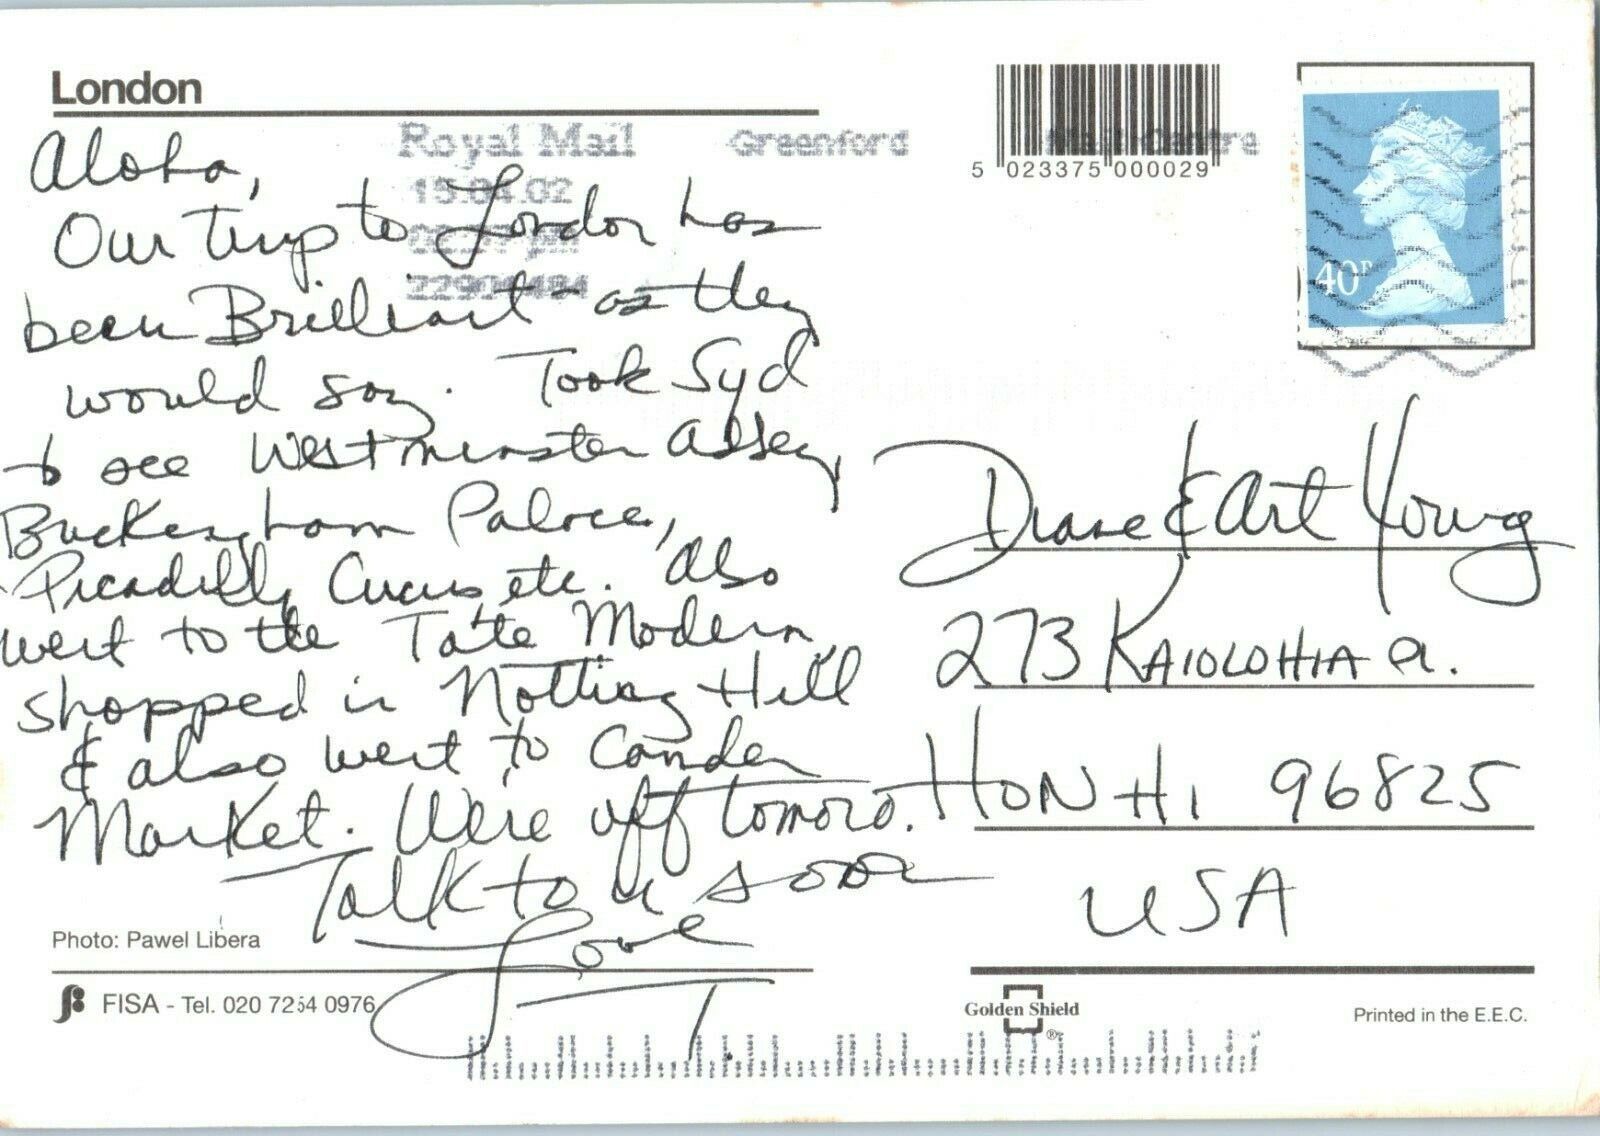 London
Royal Mail Greenford Mail Centre
5 023375 000029
40P
Aloha,
Our Trip to London has
been Brilliant - as they
would say. Took Syd
to see Westminster Abbey,
Buckingham Palace,
Picadilly Circus etc. Also
went to the Tate Modern,
shopped in Notting Hill
& also went to Camden
Market. We're off tomoro.
Talk to u soon
Love
T.
Diane & Art Young
273 KAIOLOHIA Pl.
HON HI 96825
USA
Photo: Pawel Libera
FISA - Tel. 020 7254 0976
Golden Shield
®
Printed in the E.E.C.